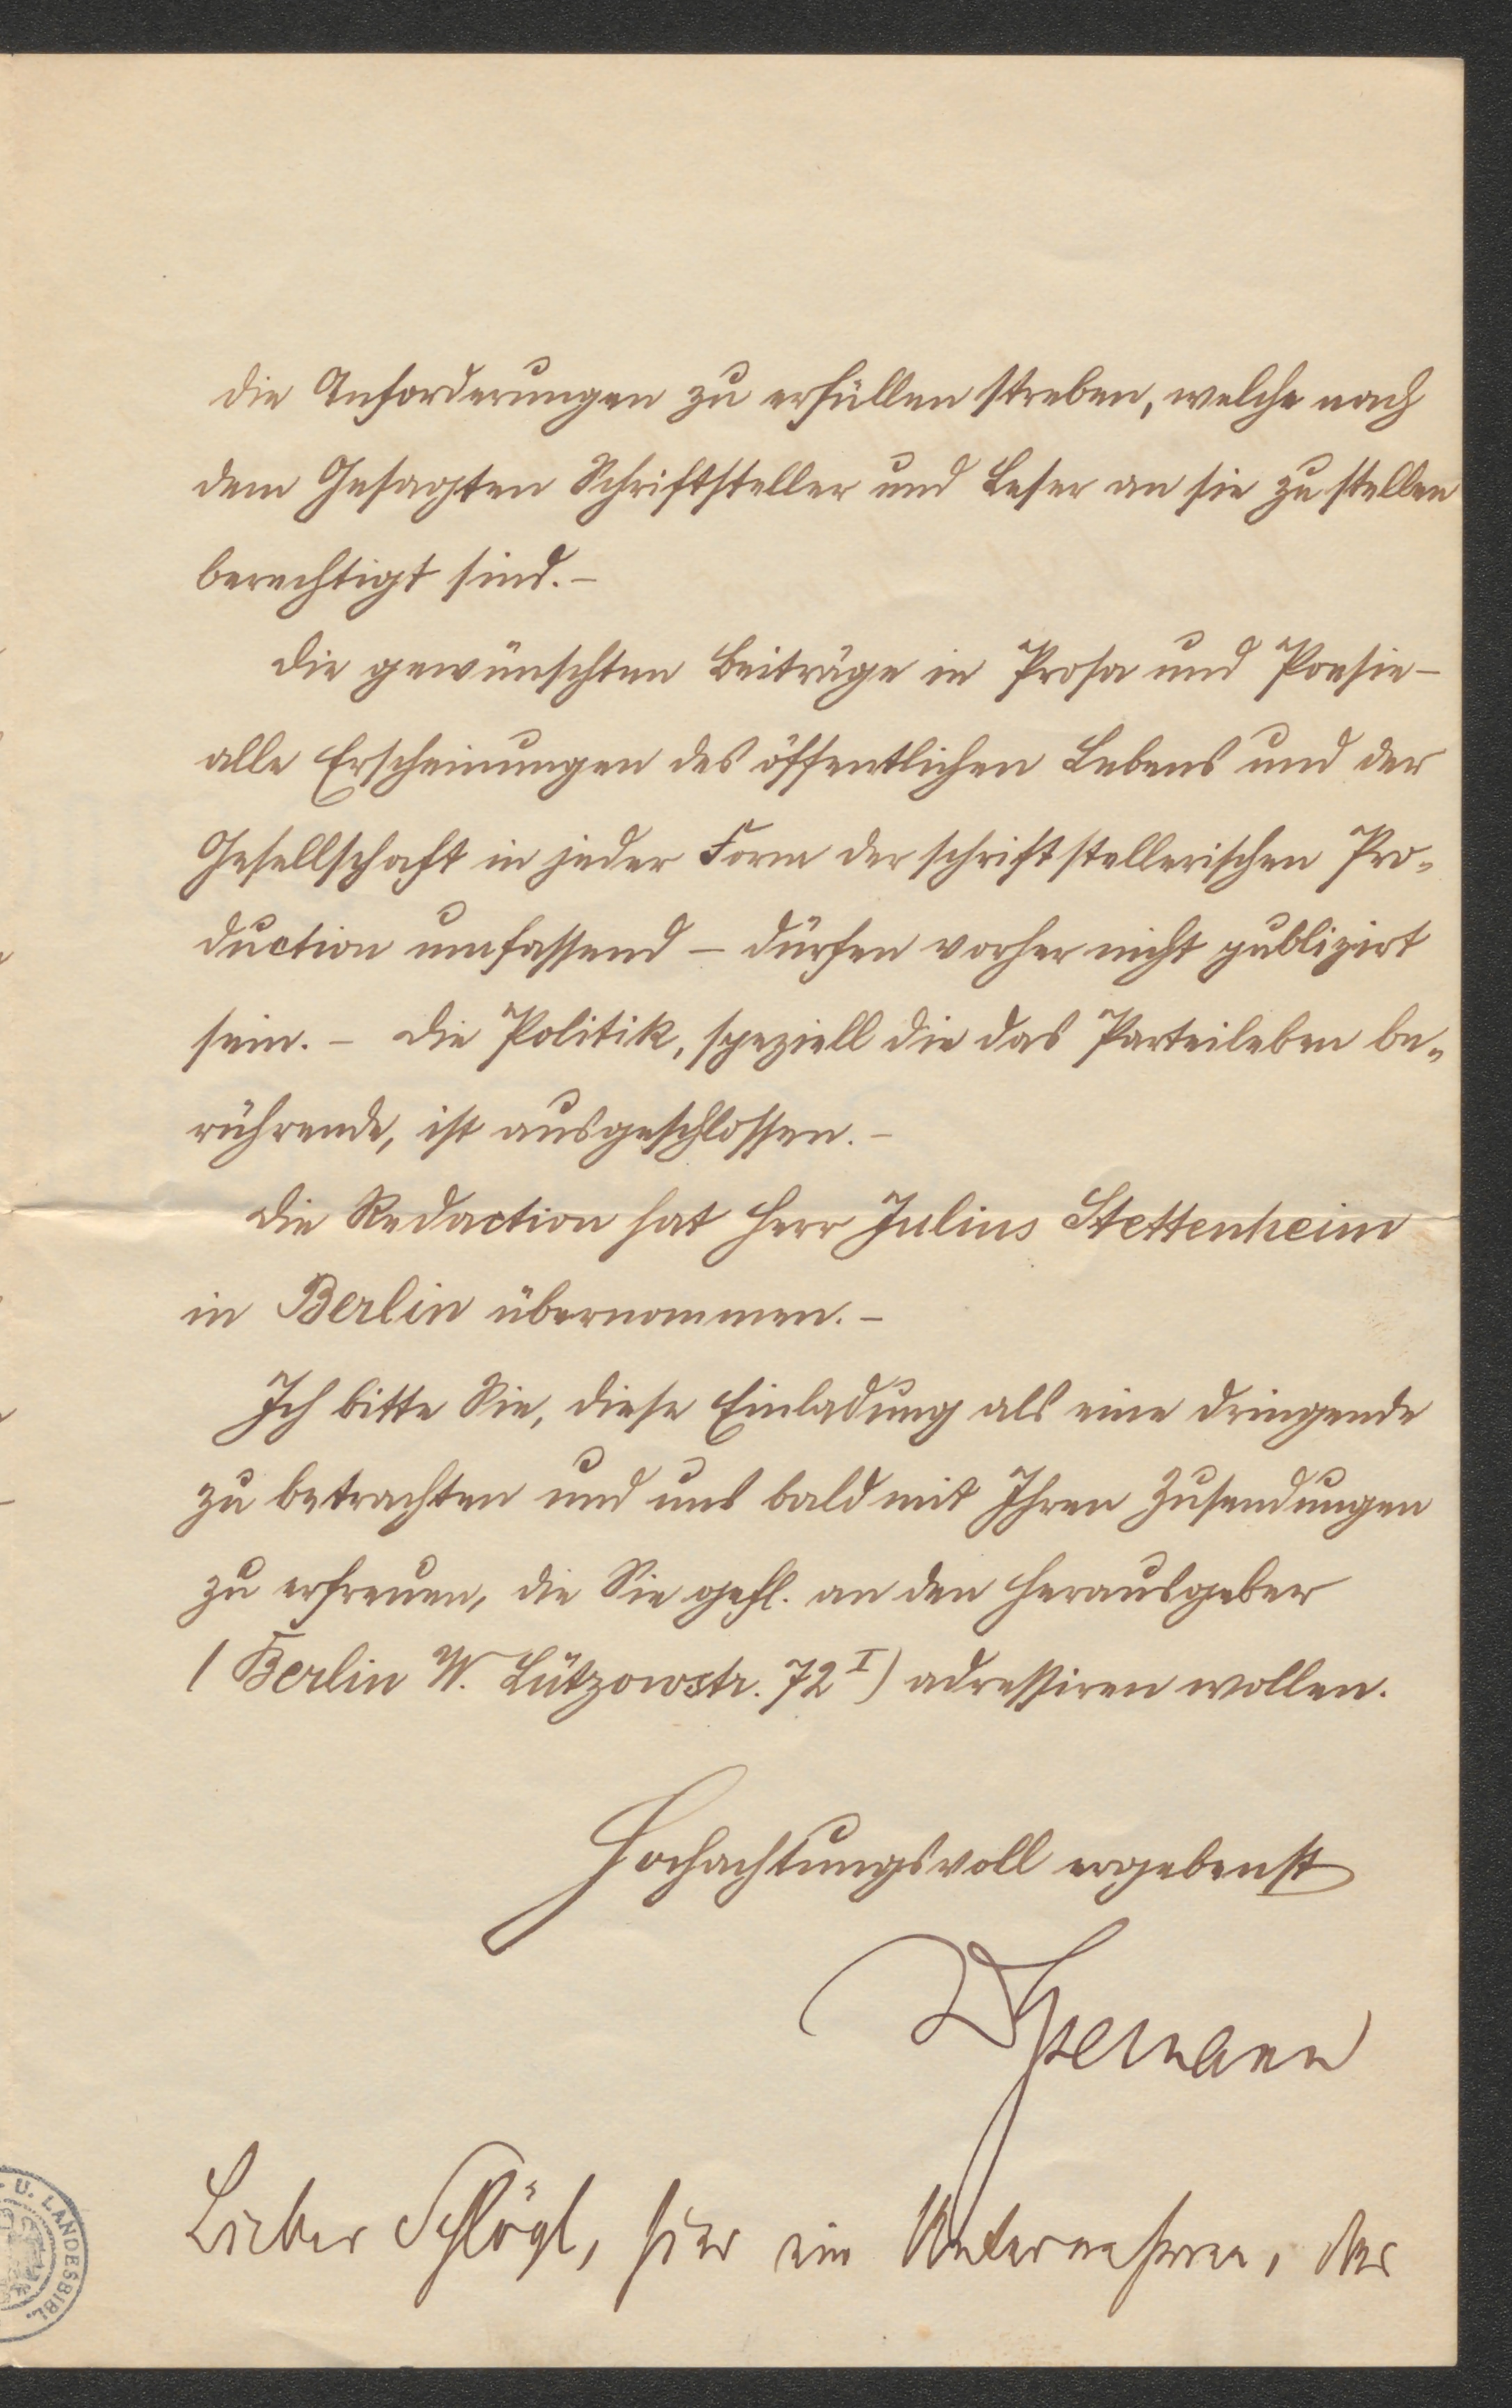 die Anforderungen zu erfüllen streben, welche nach
dem Gesagten Schriftsteller und Leser an sie zu stellen
berechtigt sind. –
Die gewünschten Beiträge in Prosa und Poesie –
alle Erscheinungen des öffentlichen Lebens und der
Gesellschaft in jeder Form der schriftstellerischen Pro-
duction umfassend – dürfen vorher nicht publizirt
sein. – Die Politik, speziell die das Parteileben be-
rührende, ist ausgeschlossen. –
Die Redaction hat Herr Julius Stettenheim
in Berlin übernommen. –
Ich bitte Sie, diese Einladung als eine dringende
zu betrachten und uns bald mit Ihren Zusendungen
zu erfreuen, die Sie gefl. an den Herausgeber
(Berlin W. Lützowstr. 72 I) adressiren wollen.
Hochachtungsvoll ergebenst
WSpemann
Lieber Schlögl, hier ein Unternehmen, das
U. LANDESBIBL.